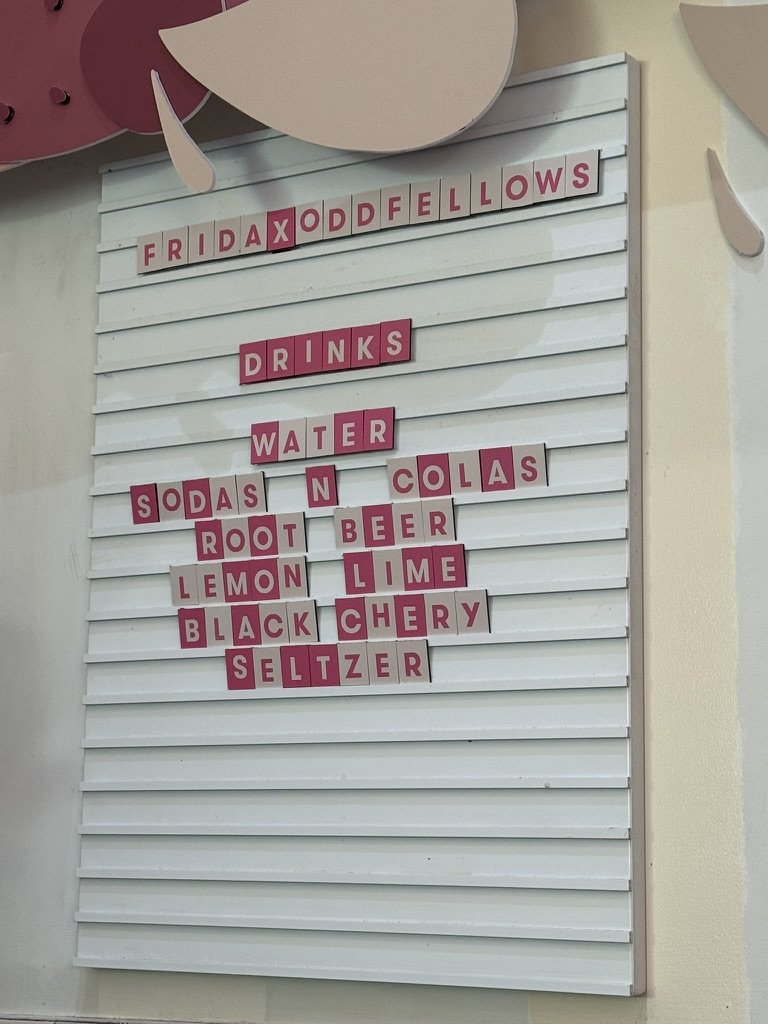 FRIDAXODDFELLOWS
DRINKS
WATER
SODAS N COLAS
ROOT BEER
LEMON LIME
BLACK CHERY
SELTZER